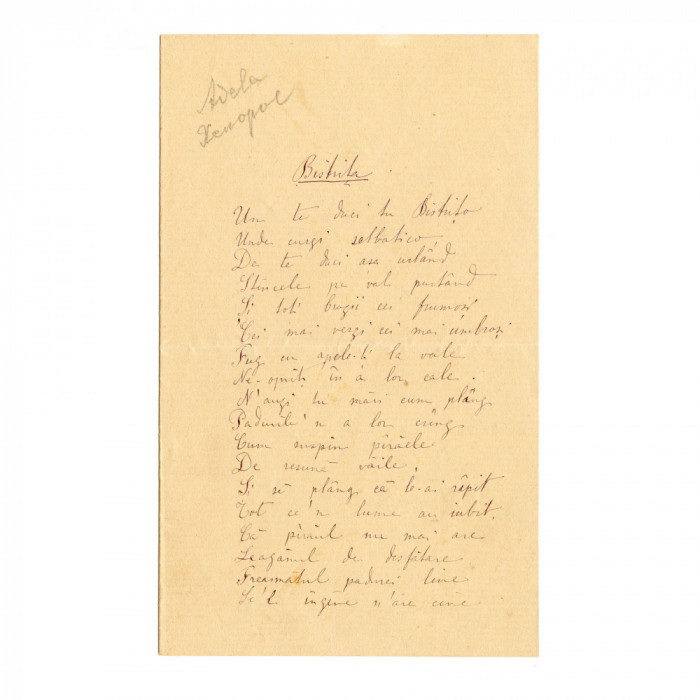 Adela
Xenopol
Bistrița
Un te duci tu Bistrițo
Unde curgi selbatico
De te duci asa urlând
Stincele pe val purtând
Și toti bragii cei frumosi
Cei mai verzi cei mai umbroși
Fug cu apele-ti la vale
Ne-opriți în a lor cale.
N'augi tu mări cum plâng
Padurile'n a lor crâng
Cum suspin pîraele
De resună văile,
Și se plâng că le-ai răpit
Tot ce'n lume au iubit.
Că pîrăul nu mai are
Leagănul de desfătare
Freamatul padurei line
Se'l îngîne n'are cine